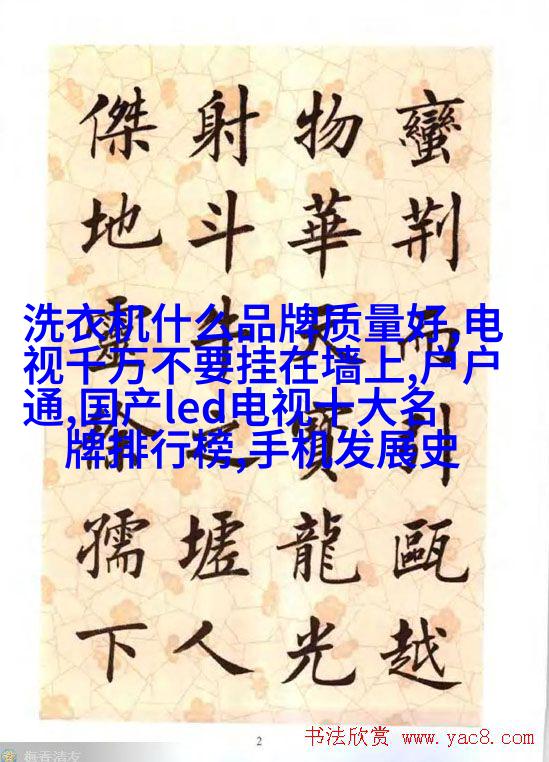 蠻荆而引甌越
物華天寶龍光
射斗牛之墟人
傑地靈徐孺下
洗衣机什么品牌质量好,电
视千万不要挂在墙上,户户
通,国产led电视十大名
牌排行榜,手机发展史
2
书法欣赏 www.yac8.com